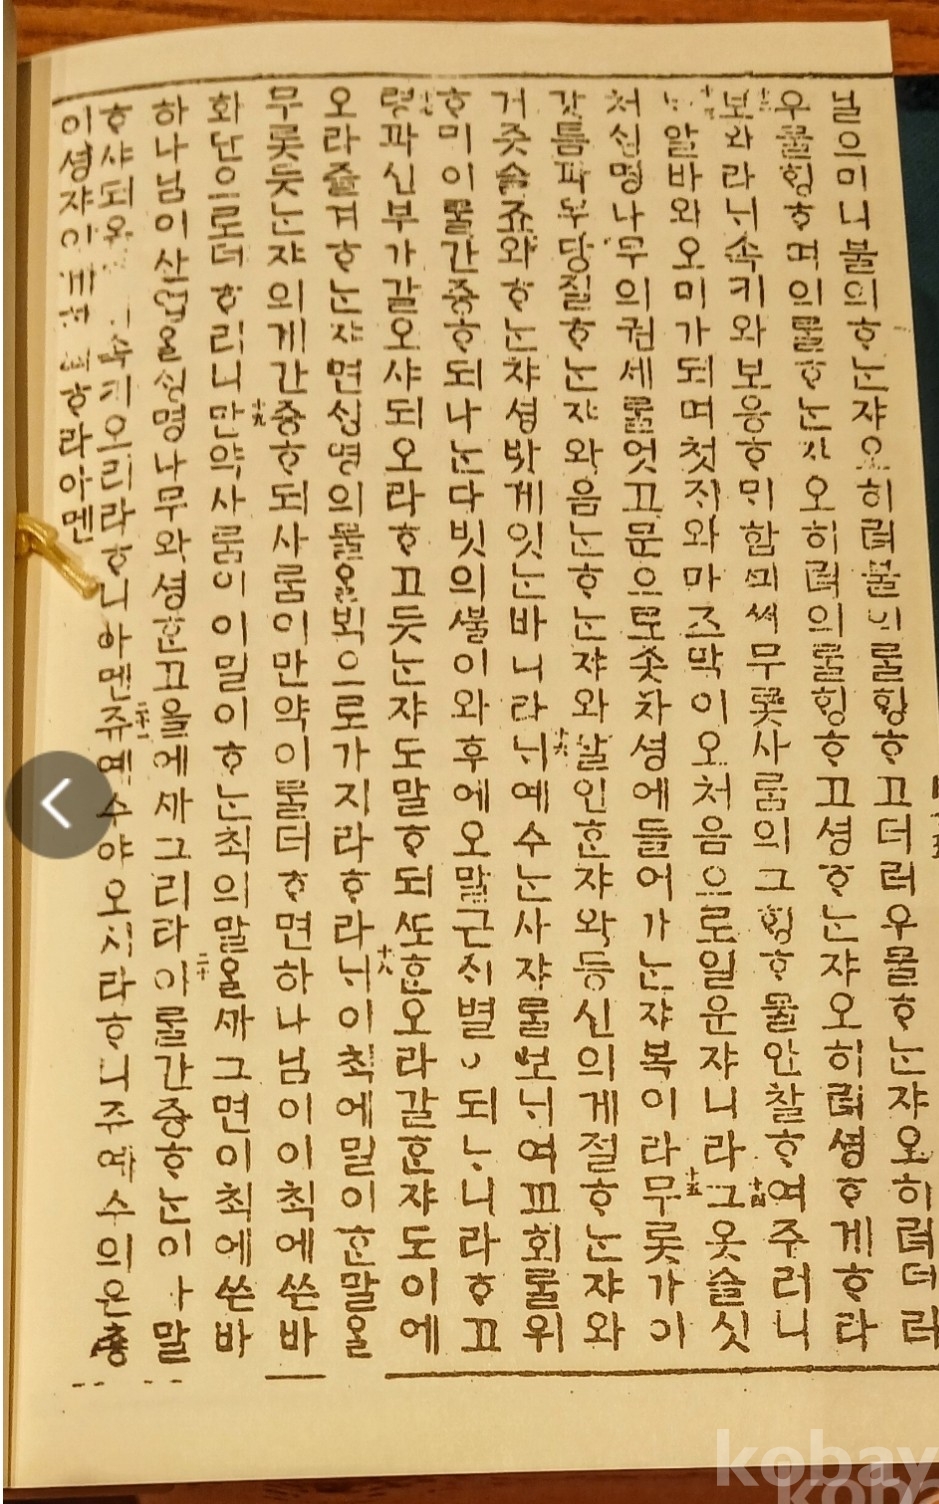 닐으미니불의ᄒᆞᄂᆞᆫ쟈오히려불의ᄅᆞᆯᄒᆡᆼᄒᆞ고더러우물ᄒᆞᄂᆞᆫ쟈오히려더러
우물ᄒᆡᆼᄒᆞ며의ᄅᆞᆯᄒᆞᄂᆞᆫ쟈오히려의ᄅᆞᆯᄒᆡᆼᄒᆞ고셩ᄒᆞᄂᆞᆫ쟈오히려셩ᄒᆞ게ᄒᆞ라
十二보와라ᄂᆡ속키와보응ᄒᆞ미함ᄭᅴᄡᅥ무롯사ᄅᆞᆷ의그ᄒᆡᆼᄒᆞ물안찰ᄒᆞ여주러니
十三ᄂᆡ알바와오미가되며첫ᄌᆡ와마즈막이오처음으로일운쟈니라十四그옷슬싯
처싱명나무의권세ᄅᆞᆯ엇고문으로좃차셩에들어가ᄂᆞᆫ쟈복이라十五무롯가이
갓틈과부당질ᄒᆞᄂᆞᆫ쟈와음ᄂᆞᆫᄒᆞᄂᆞᆫ쟈와살인ᄒᆞᆫ쟈와등신의게절ᄒᆞᄂᆞᆫ쟈와
거즛슬죠와ᄒᆞᄂᆞᆫ쟈셩밧게잇ᄂᆞᆫ바니라十六ᄂᆡ예수ᄂᆞᆫ사쟈ᄅᆞᆯ보ᄂᆡ여교회ᄅᆞᆯ위
ᄒᆞ미이ᄅᆞᆯ간증ᄒᆞ되나ᄂᆞᆫ다빗의ᄲᅮᆯ이와후에오말근ᄉᆡ별 되ᄂᆞ니라ᄒᆞ고
十七령과신부가갈오샤되오라ᄒᆞ고듯ᄂᆞᆫ쟈도말ᄒᆞ되ᄯᅩᄒᆞᆫ오라갈ᄒᆞᆫ쟈도이에
오라즐겨ᄒᆞᄂᆞᆫ쟈면싱명의물을ᄇᆡᆨ으로가지라ᄒᆞ라十八ᄂᆡ이ᄎᆡᆨ에밀이ᄒᆞᆫ말을
무롯듯ᄂᆞᆫ쟈의게간증ᄒᆞ되사ᄅᆞᆷ이만약이ᄅᆞᆯ더ᄒᆞ면하나님이이ᄎᆡᆨ에쓴바
화단으로더ᄒᆞ리니十九만약사ᄅᆞᆷ이이밀이ᄒᆞᄂᆞᆫᄎᆡᆨ의말을ᄭᅡ그면이ᄎᆡᆨ에쓴바
하나님이산업을싱명나무와셩ᄒᆞᆫ고을에ᄭᅡ그리라二十이ᄅᆞᆯ간증ᄒᆞᄂᆞᆫ이 말
ᄒᆞ샤되 속키오리라ᄒᆞ니아멘二十一쥬예수야오시라ᄒᆞ니쥬예수의은총
이셩쟈이게 ᄒᆞ라아멘
kobay